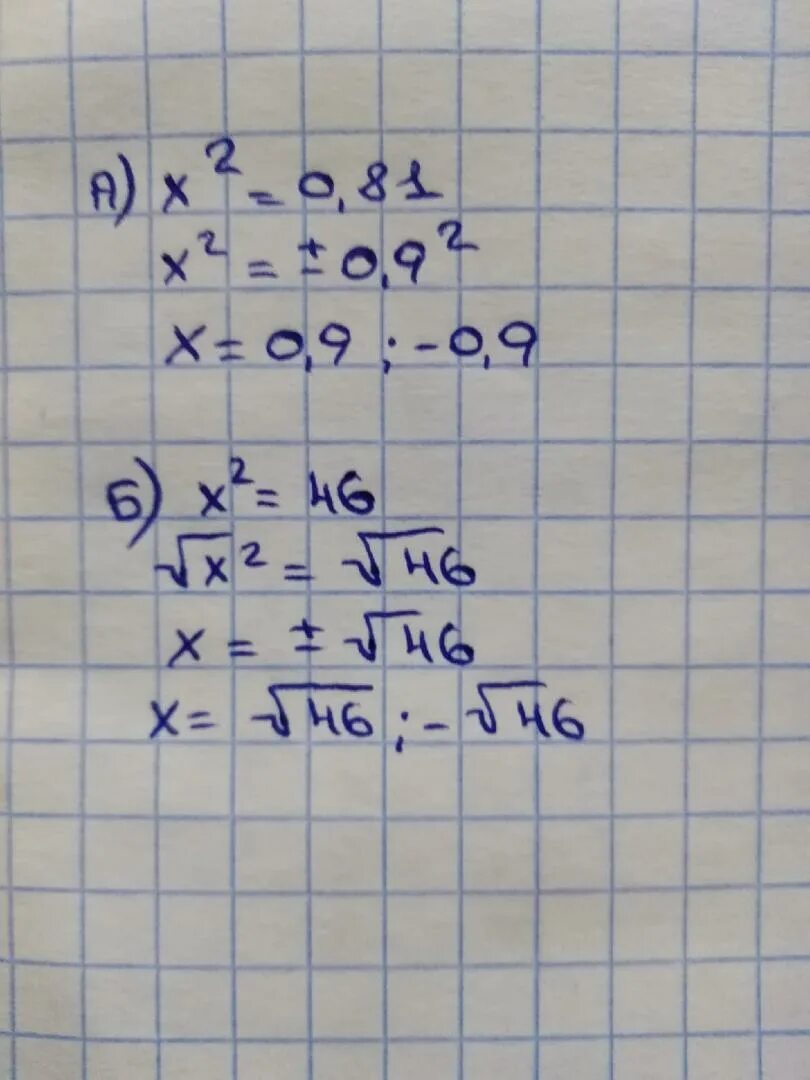 А) x² = 0,81
x² = ± 0,9²
x = 0,9 ; - 0,9
Б) x² = 46
√x² = √46
x = ± √46
x = √46 ; - √46